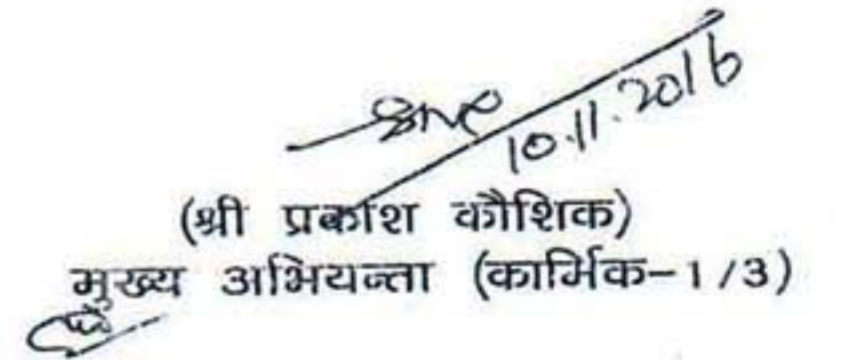 10.11.2016
(श्री प्रकाश कौशिक)
मुख्य अभियन्ता (कार्मिक-1/3)